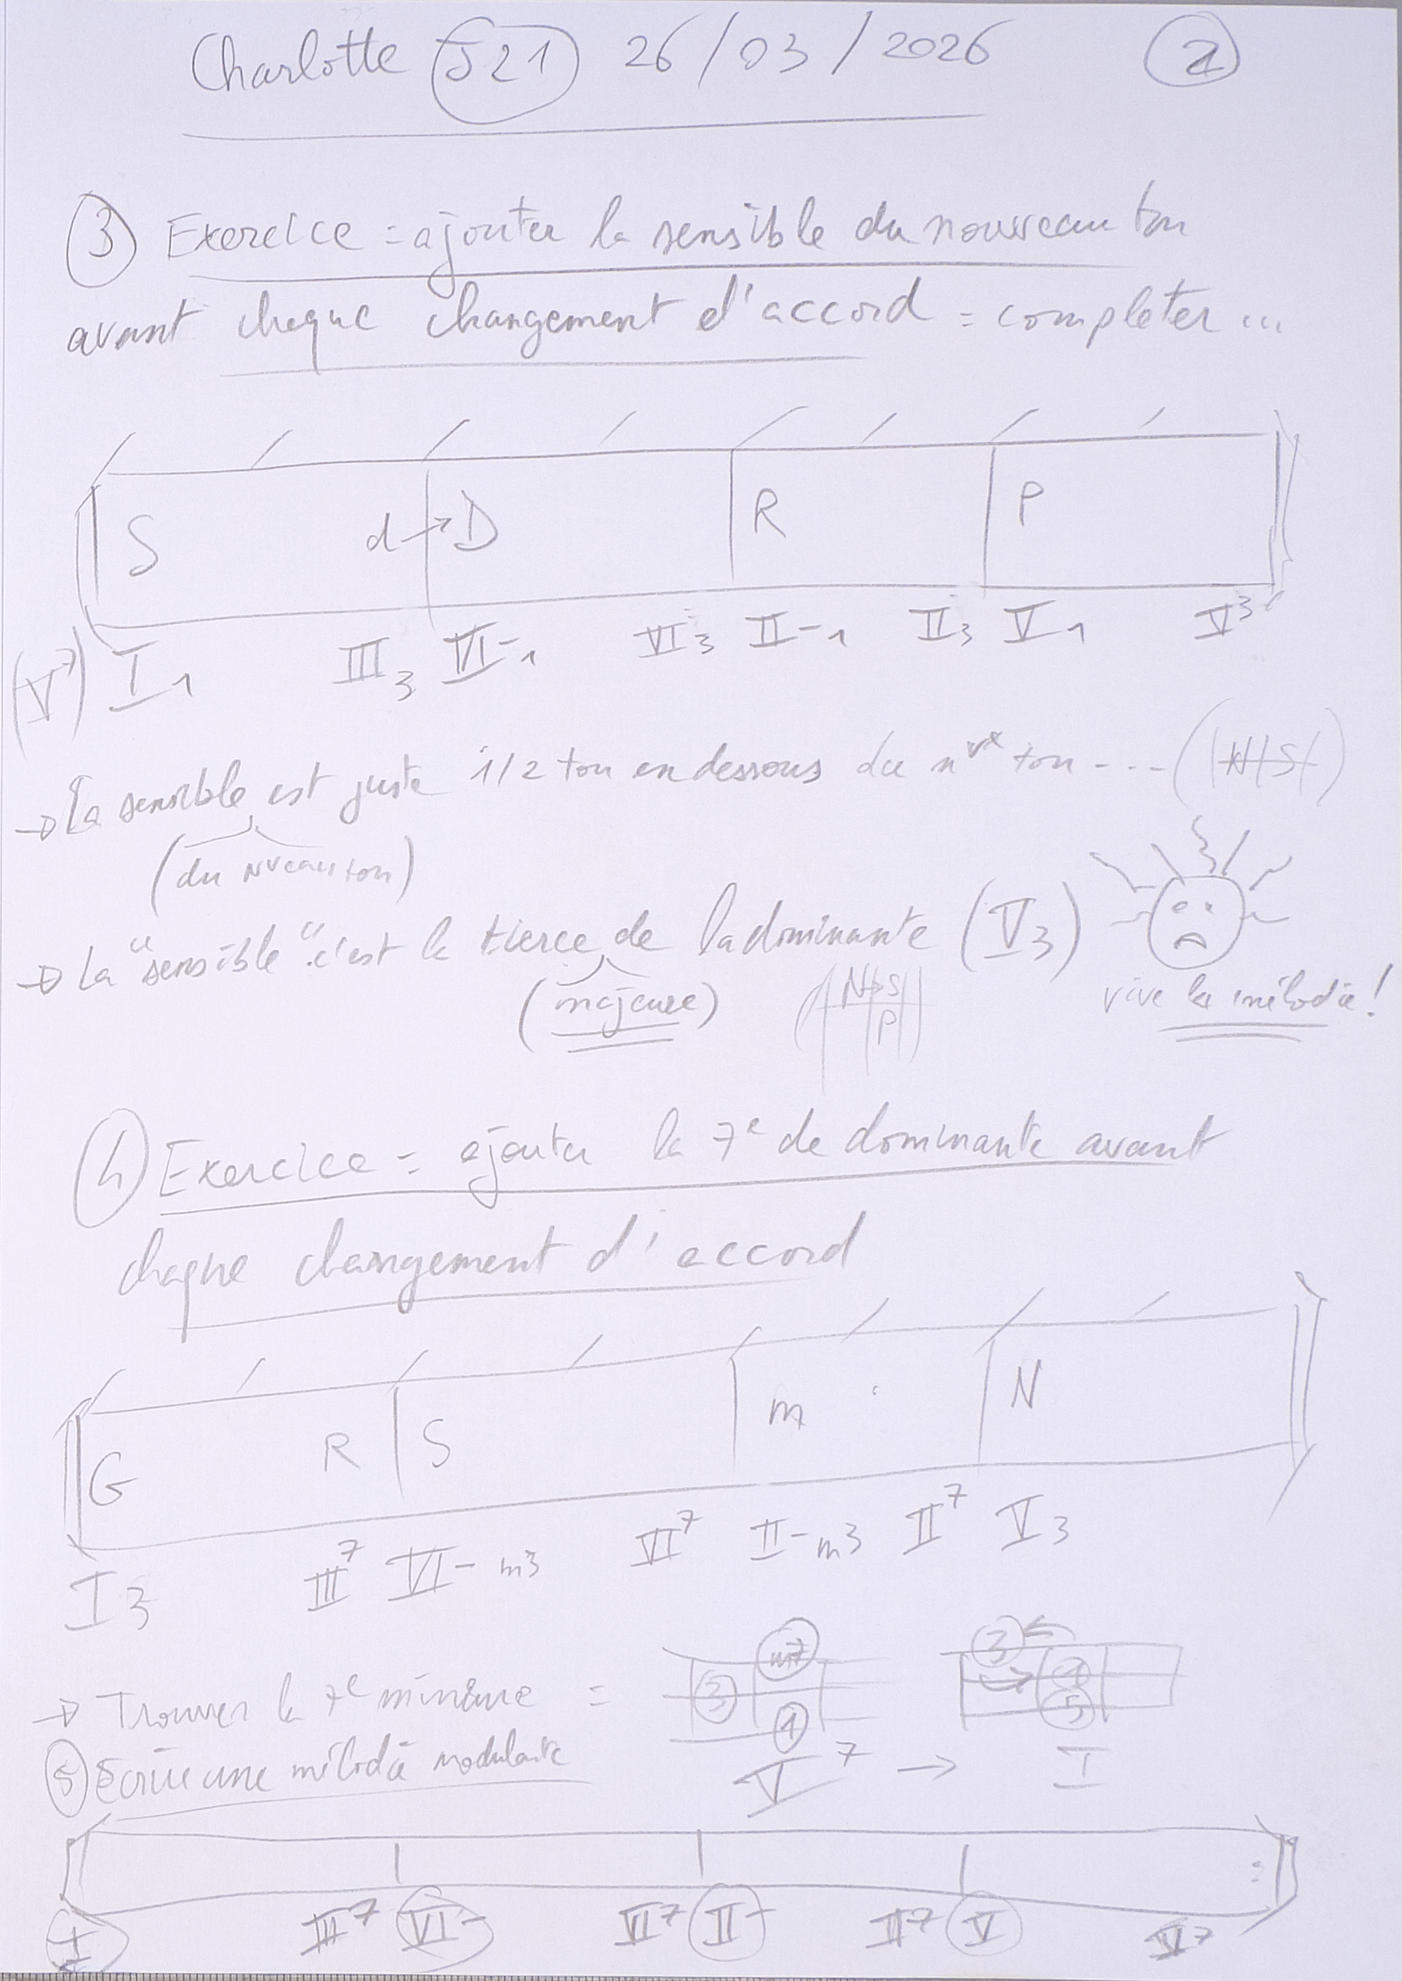 Charlotte J21 26/03/2026 2
3 Exercice = ajouter la sensible du nouveau ton
avant chaque changement d'accord = completer ...
S d→D R P
(V7) I1 III3 VI-1 VI3 II-1 II3 V1 V3
→ La sensible est juste 1/2 ton en dessous du nvx ton --- (|N|S|)
(du nveau ton)
→ La "sensible" c'est la tierce de la dominante (V3)
(majeure) N→S P vive la mélodie !
4 Exercice = ajouter la 7e de dominante avant
chaque changement d'accord
G R S m N
I3 III7 VI- m3 VI7 II- m3 II7 V3
→ Trouver la 7e mineure = 3 m7 1 3 1 5
5 Ecrire une mélodie modulante V7 → I
I III7 VI- VI7 II- II7 V V7